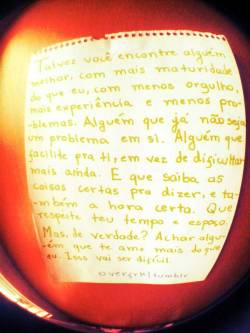 Talvez você encontre alguém
melhor, com mais maturidade
do que eu, com menos orgulho,
mais experiência e menos pro-
blemas. Alguém que já não seja
um problema em si. Alguém que
facilite pra ti, em vez de dificultar
mais ainda. E que saiba as
coisas certas pra dizer, e ta-
mbém a hora certa. Que
respeite teu tempo e espaço.
Mas, de verdade? Achar algu-
ém que te ame mais do que
eu. Isso vai ser difícil.
overgrk/tumblr